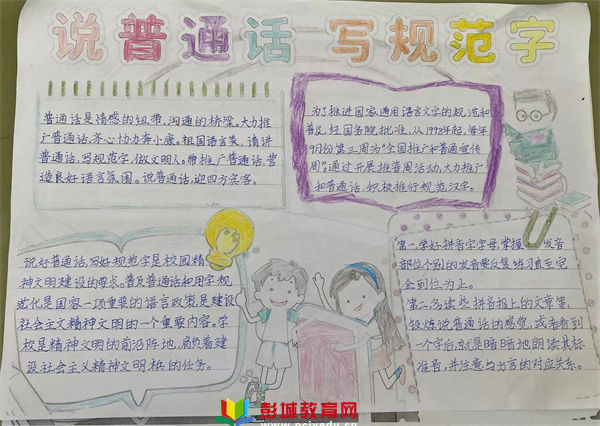 说普通话 写规范字
普通话是情感的纽带、沟通的桥梁。大力推
广普通话,齐心协力奔小康。祖国语言美,请讲
普通话,写规范字,做文明人。推广普通话,营
造良好语言氛围。说普通话,迎四方宾客。
为了推进国家通用语言文字的规范和
普及,经国务院批准,从1998年起,每年
9月份第三周为"全国推广和普通宣传
周"通过开展推普周活动,大力推广
和普通话,积极推行规范汉字。
说好普通话,写好规范字是校园精
神文明建设的要求。普及普通话和用字规
范化是国家一项重要的语言政策,是建设
社会主义精神文明的一个重要内容。学
校是精神文明的前沿阵地,肩负着建
设社会主义精神文明的任务。
第一,学好拼音字母,掌握发音
部位个别的发音要反复练习直至完
全到位为止。
第二,多读些拼音报上的文章等,
锻炼说普通话的感觉,或者看到
一个字后,就是暗暗地朗读其标
准音,并注意与方言的对应关系。
彭城教育网